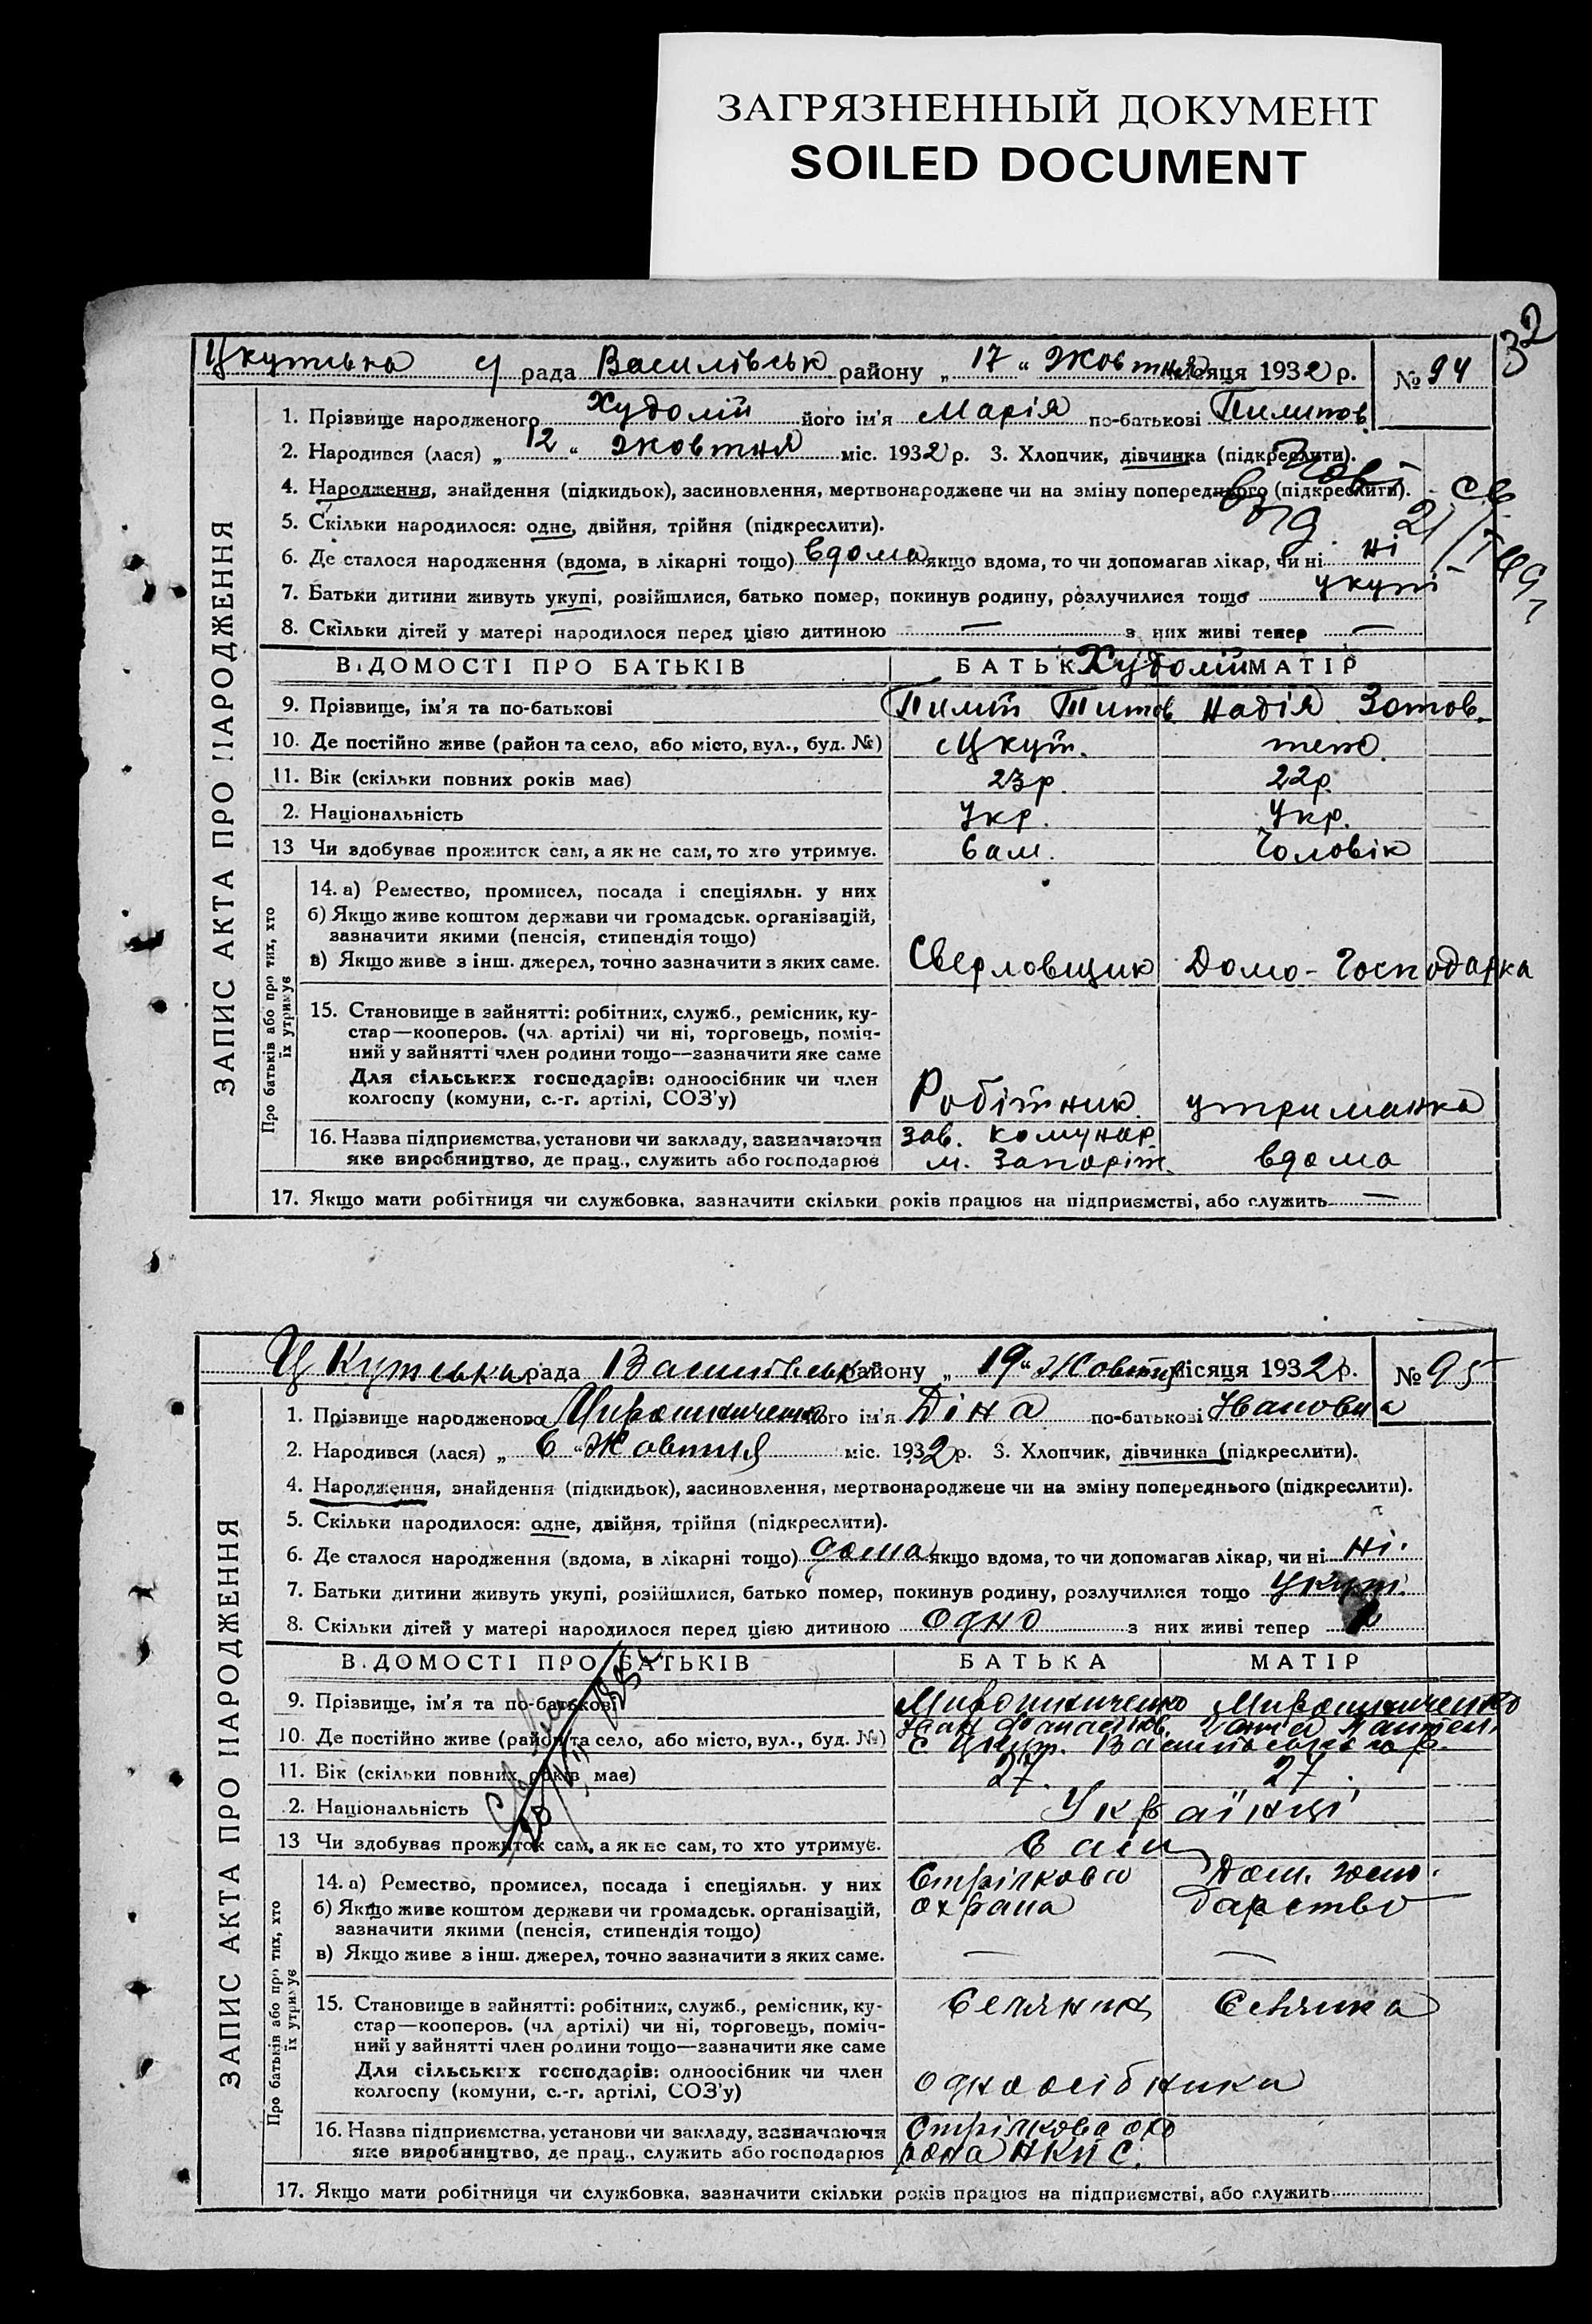 ЗАГРЯЗНЕННЫЙ ДОКУМЕНТ
SOILED DOCUMENT
32
Цкутська с/рада Василівськ району „17“ Жовтня місяця 1932 р. № 94
ЗАПИС АКТА ПРО НАРОДЖЕННЯ
1. Прізвище народженого Худолій його ім'я Марія по-батькові Пилипов.
2. Народився (лася) „12“ жовтня міс. 1932 р. 3. Хлопчик, дівчинка (підкреслити).
4. Народження, знайдення (підкидьок), засиновлення, мертвонароджене чи на зміну попереднього (підкреслити).
5. Скільки народилося: одне, двійня, трійня (підкреслити).
6. Де сталося народження (вдома, в лікарні тощо) вдома якщо вдома, то чи допомагав лікар, чи ні ні
7. Батьки дитини живуть укупі, розійшлися, батько помер, покинув родину, розлучилися тощо укупі
8. Скільки дітей у матері народилося перед цією дитиною — з них живі тепер —
ВІДОМОСТІ ПРО БАТЬКІВ БАТЬКА Худолій МАТІР
9. Прізвище, ім'я та по-батькові Пилип Титов. Надія Зотов.
10. Де постійно живе (район та село, або місто, вул., буд. №) с Цкут. теж.
11. Вік (скільки повних років має) 23р. 22р.
2. Національність Укр. Укр.
13 Чи здобуває прожиток сам, а як не сам, то хто утримує. Сам. Чоловік
Про батьків або про тих, хто їх утримує
14. а) Ремество, промисел, посада і спеціяльн. у них
б) Якщо живе коштом держави чи громадськ. організацій,
зазначити якими (пенсія, стипендія тощо)
в) Якщо живе з інш. джерел, точно зазначити з яких саме. Сверловщик Домо-Господарка
15. Становище в зайнятті: робітник, служб., ремісник, ку-
стар—кооперов. (чл. артілі) чи ні, торговець, поміч-
ний у зайнятті член родини тощо—зазначити яке саме
Для сільських господарів: одноосібник чи член
колгоспу (комуни, с.-г. артілі, СОЗ'у) Робітник. утриманка
16. Назва підприємства, установи чи закладу, зазначаючи зав. комунар
яке виробництво, де прац., служить або господарює м. Запоріж. вдома
17. Якщо мати робітниця чи службовка, зазначити скільки років працює на підприємстві, або служить —
Ц Кутська рада Василівськ району „19“ Жовтня місяця 1932 р. № 95
ЗАПИС АКТА ПРО НАРОДЖЕННЯ
1. Прізвище народженого Мирошниченко його ім'я Діна по-батькові Івановна
2. Народився (лася) „6“ Жовтня міс. 1932 р. 3. Хлопчик, дівчинка (підкреслити).
4. Народження, знайдення (підкидьок), засиновлення, мертвонароджене чи на зміну попереднього (підкреслити).
5. Скільки народилося: одне, двійня, трійня (підкреслити).
6. Де сталося народження (вдома, в лікарні тощо) дома якщо вдома, то чи допомагав лікар, чи ні ні.
7. Батьки дитини живуть укупі, розійшлися, батько помер, покинув родину, розлучилися тощо Укупі
8. Скільки дітей у матері народилося перед цією дитиною одно з них живі тепер
ВІДОМОСТІ ПРО БАТЬКІВ БАТЬКА МАТІР
9. Прізвище, ім'я та по-батькові Мирошниченко Мирошниченко
10. Де постійно живе (район та село, або місто, вул., буд. №) с Цкут. Василівського р.
11. Вік (скільки повних років має) 27. 27.
2. Національність Українці
13 Чи здобуває прожиток сам, а як не сам, то хто утримує. Сам
Про батьків або про тих, хто їх утримує
14. а) Ремество, промисел, посада і спеціяльн. у них Стрілкова Дом. госпо-
б) Якщо живе коштом держави чи громадськ. організацій, охрана дарство
зазначити якими (пенсія, стипендія тощо)
в) Якщо живе з інш. джерел, точно зазначити з яких саме. — —
15. Становище в зайнятті: робітник, служб., ремісник, ку- Селянин Селянка
стар—кооперов. (чл. артілі) чи ні, торговець, поміч-
ний у зайнятті член родини тощо—зазначити яке саме
Для сільських господарів: одноосібник чи член
колгоспу (комуни, с.-г. артілі, СОЗ'у) одноосібники
16. Назва підприємства, установи чи закладу, зазначаючи Стрілкова охо
яке виробництво, де прац., служить або господарює рона НКПС.
17. Якщо мати робітниця чи службовка, зазначити скільки років працює на підприємстві, або служить